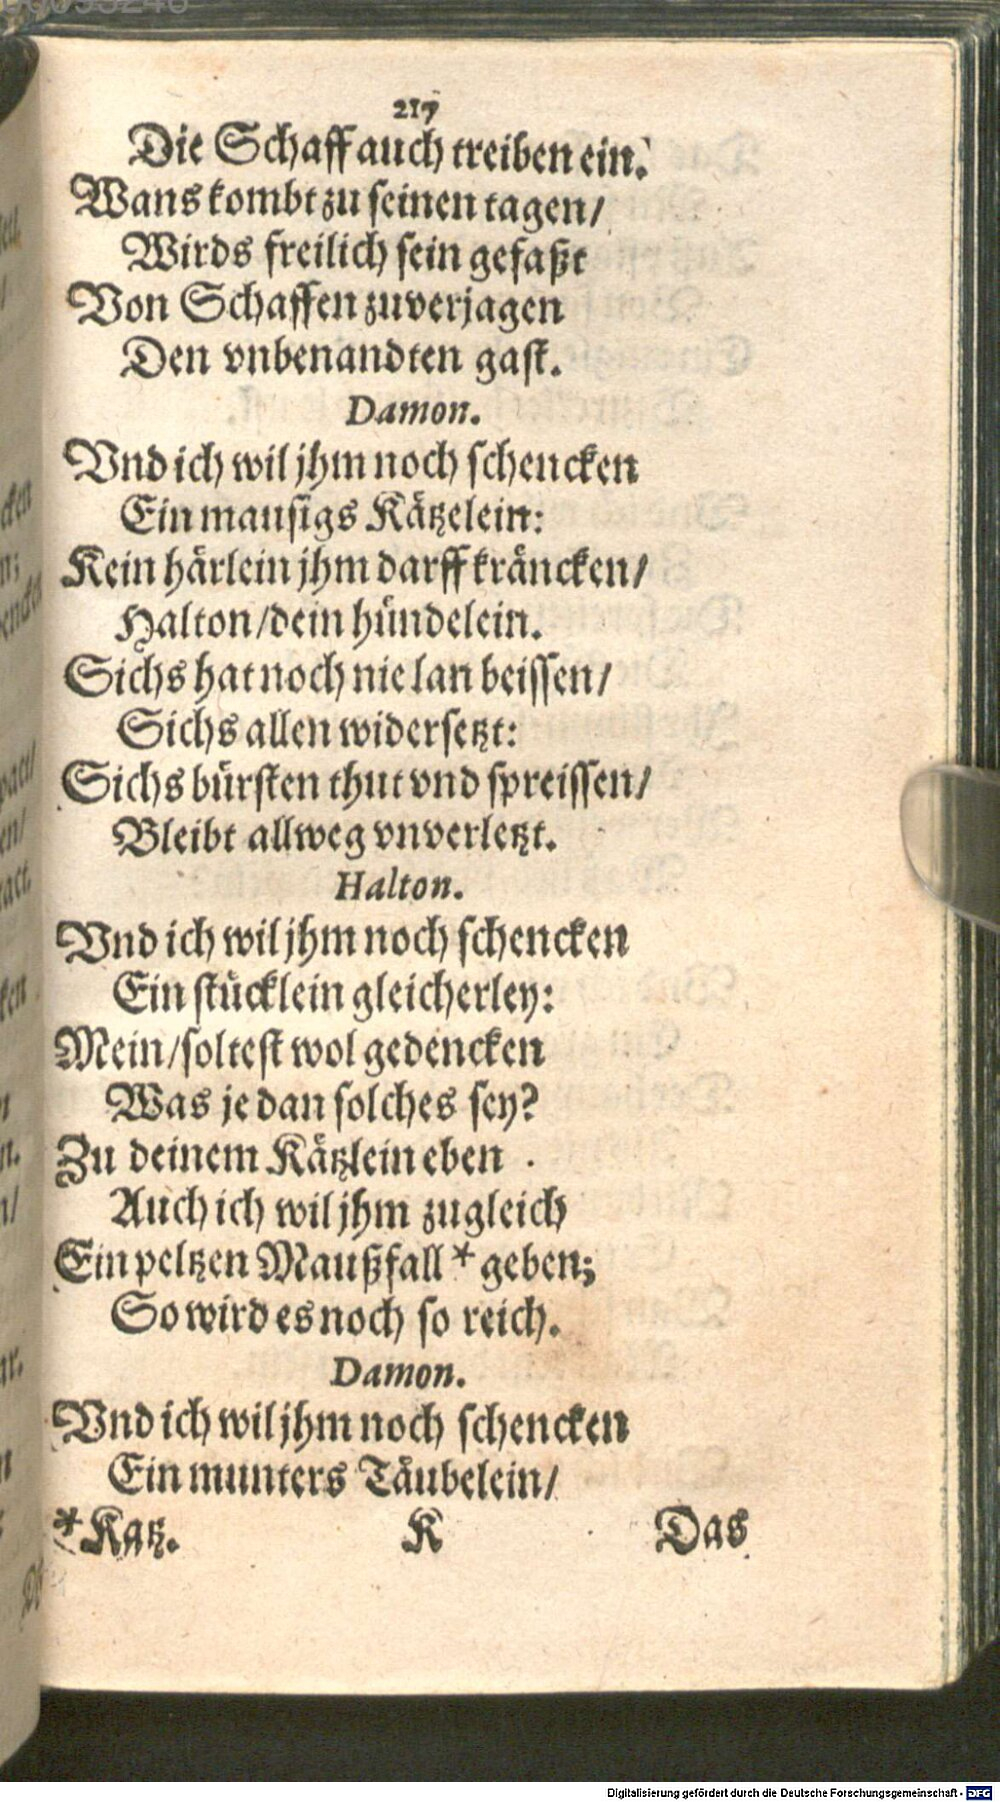 217
Die Schaff auch treiben ein.
Wans kombt zu seinen tagen/
Wirds freilich sein gefaßt
Von Schaffen zuverjagen
Den vnbenandten gast.
Damon.
Vnd ich wil jhm noch schencken
Ein mausigs Kätzelein:
Kein härlein jhm darff kräncken/
Halton/dein hündelein.
Sichs hat noch nie lan beissen/
Sichs allen widersetzt:
Sichs bürsten thut vnd spreissen/
Bleibt allweg vnverletzt.
Halton.
Vnd ich wil jhm noch schencken
Ein stücklein gleicherley:
Mein/soltest wol gedencken
Was je dan solches sey?
Zu deinem Kätzlein eben
Auch ich wil jhm zugleich
Ein peltzen Maußfall * geben;
So wird es noch so reich.
Damon.
Vnd ich wil jhm noch schencken
Ein munters Täubelein/
* Katz. K Das
Digitalisierung gefördert durch die Deutsche Forschungsgemeinschaft - DFG